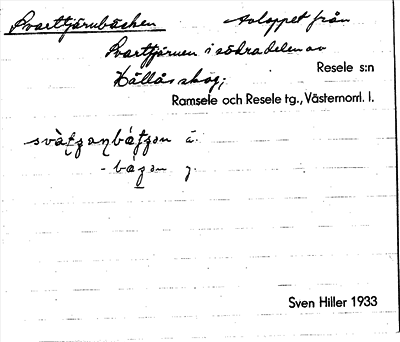 Svarttjärnbäcken avloppet från
Svarttjärnen i södra delen av
Hällås skog;
Resele s:n
Ramsele och Resele tg., Västernorrl. l.
ä.
y.
Sven Hiller 1933